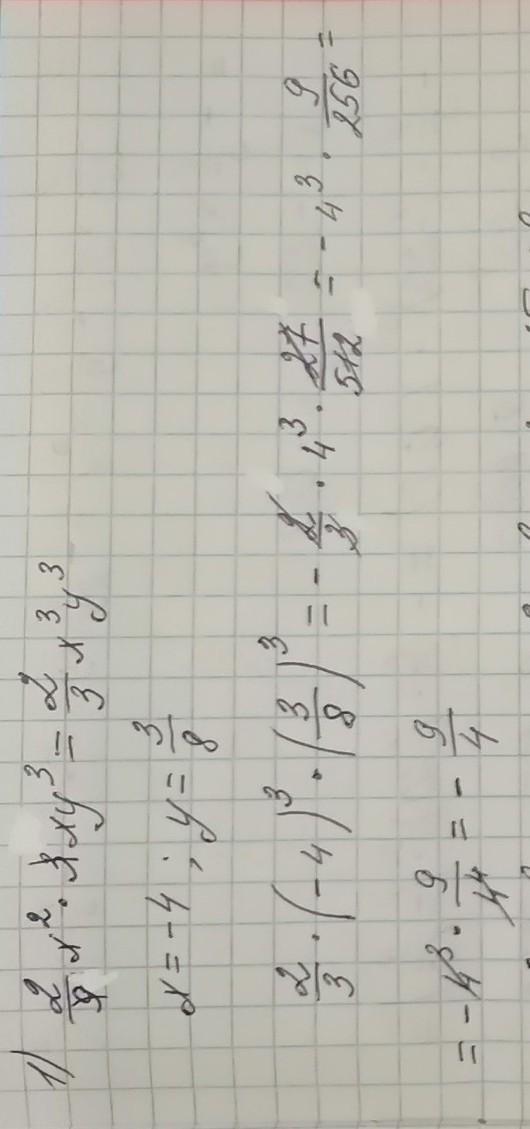 1) 2/9 x² · 3xy³ = 2/3 x³y³
x = -4 ; y = 3/8
2/3 · (-4)³ · (3/8)³ = - 2/3 · 4³ · 27/512 = - 4³ · 9/256 =
= - 4³ · 9/4⁴ = - 9/4